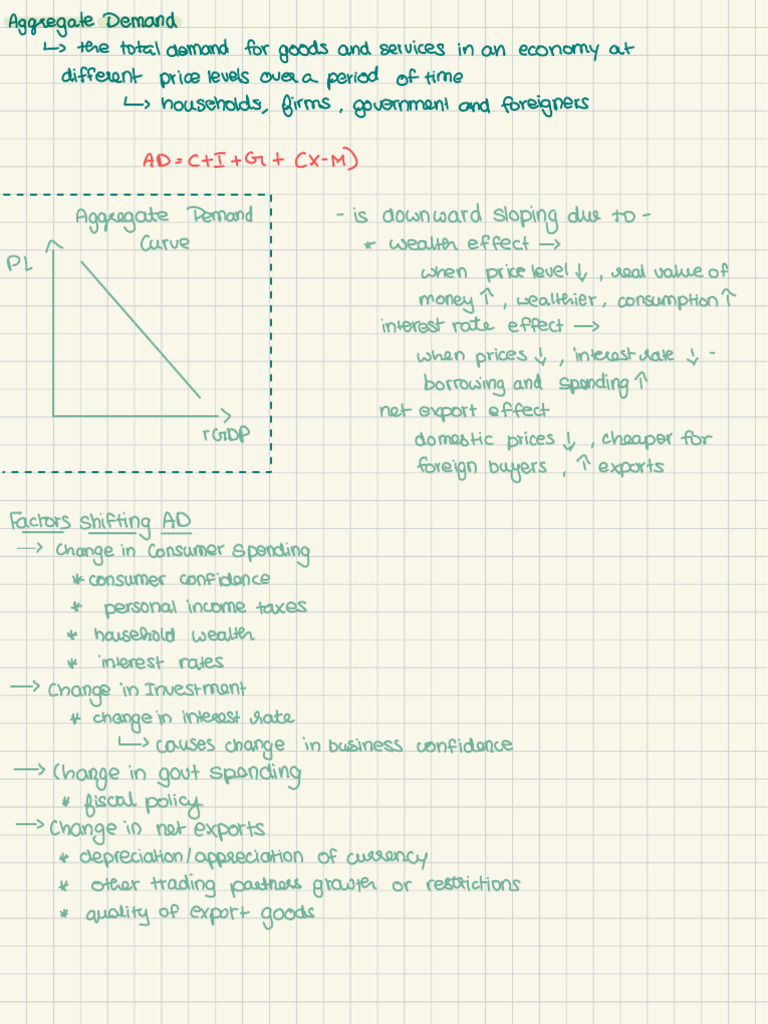 Aggregate Demand
↳ the total demand for goods and services in an economy at
different price levels over a period of time
↳ households, firms, government and foreigners
AD = C+I+G+ (X-M)
Aggregate Demand
Curve
PL
rGDP
- is downward sloping due to -
* wealth effect →
when price level ↓, real value of
money ↑, wealthier, consumption ↑
interest rate effect →
when prices ↓, interest rate ↓ -
borrowing and spending ↑
net export effect
domestic prices ↓, cheaper for
foreign buyers, ↑ exports
Factors shifting AD
→ Change in consumer spending
* consumer confidence
* personal income taxes
* household wealth
* interest rates
→ Change in Investment
* change in interest rate
↳ causes change in business confidence
→ Change in gout spending
* fiscal policy
→ Change in net exports
* depreciation/appreciation of currency
* other trading partners growth or restrictions
* quality of export goods